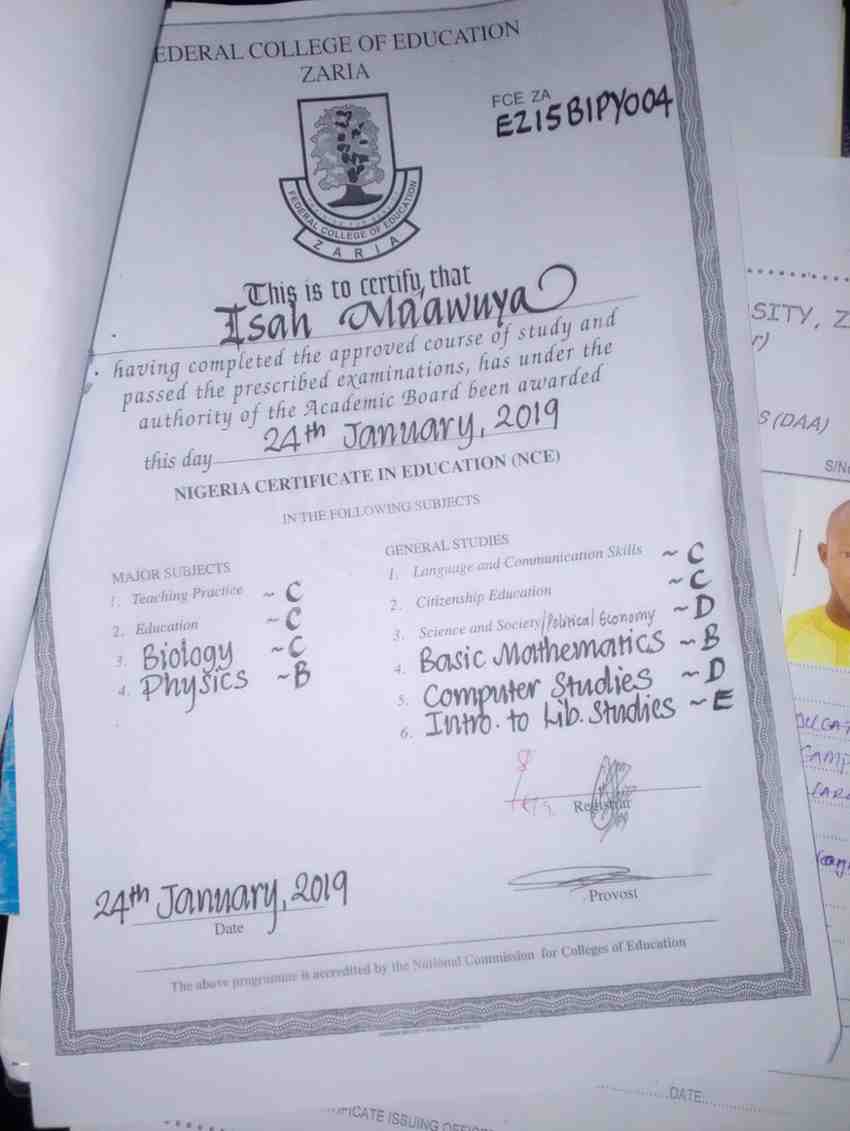 FEDERAL COLLEGE OF EDUCATION
ZARIA
FCE ZA
EZ15BIPY004
FEDERAL COLLEGE OF EDUCATION
ZARIA
This is to certify, that
Isah Ma'awuya
having completed the approved course of study and
passed the prescribed examinations, has under the
authority of the Academic Board been awarded
this day 24th January, 2019
NIGERIA CERTIFICATE IN EDUCATION (NCE)
IN THE FOLLOWING SUBJECTS
MAJOR SUBJECTS
1. Teaching Practice ~ C
2. Education ~ C
3. Biology ~ C
4. Physics ~ B
GENERAL STUDIES
1. Language and Communication Skills ~ C
2. Citizenship Education ~ C
3. Science and Society/Political Economy ~ D
4. Basic Mathematics ~ B
5. Computer Studies ~ D
6. Intro. to Lib. Studies ~ E
Registrar
Provost
24th January, 2019
Date
The above programme is accredited by the National Commission for Colleges of Education
SITY, Z
r)
S (DAA)
S/N
DATE
ICATE ISSUING OFFIC